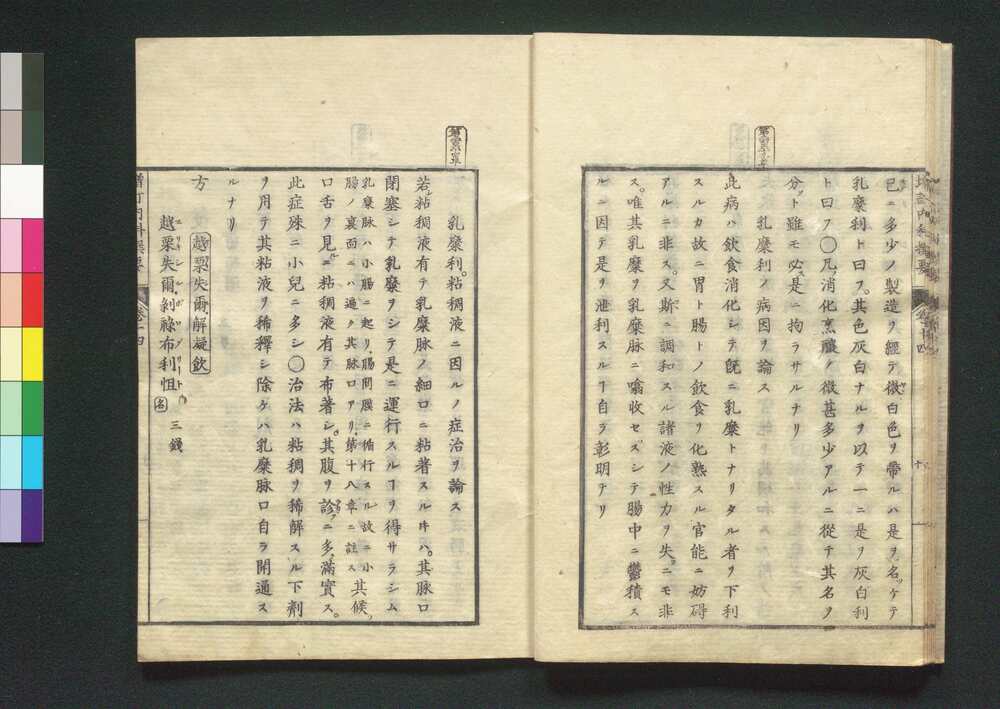 已ニ多少ノ製造ヲ經テ微白色ヲ帶ルハ是ヲ名ケテ
乳糜利ト曰フ其色灰白ナルヲ以テ一ニ是ヲ灰白利
ト曰フ〇凡消化烹釀ノ微甚多少アルニ從テ其名ヲ
分ト雖モ必是ニ拘ラサルナリ
乳糜利ノ病因ヲ論ス
此病ハ飲食消化シテ既ニ乳糜トナリタル者ヲ下利
スルカ故ニ胃ト腸トノ飲食ヲ化熟スル官能ニ妨碍
アルニ非ス又斯ニ調和スル諸液ノ性力ヲ失ニモ非
ス唯其乳糜ヲ乳糜脉ニ噏收セズシテ腸中ニ鬱積ス
ルニ因テ是ヲ泄利スルヿ自ラ彰明ナリ
乳糜利粘稠液ニ因ルノ症治ヲ論ス
若粘稠液有テ乳糜脉ノ細口ニ粘著スルキハ其脉口
閉塞シテ乳糜ヲシテ是ニ運行スルヿヲ得サラシム
乳糜脉ハ小腸ニ起リ腸間膜ニ循行スル故ニ小
腸ノ裏面ニハ遍ク其脉口アリ第十八章ニ註ス
其候
口舌ヲ見ルニ粘稠液有テ布著シ其腹ヲ診ニ多滿實ス
此症殊ニ小兒ニ多シ〇治法ハ粘稠ヲ稀解スル下劑
ヲ用テ其粘液ヲ稀釋シ除ケハ乳糜脉口自ラ開通ス
ルナリ
方 越栗失爾解凝飲
越栗失爾剝祿布利怛 名 三錢